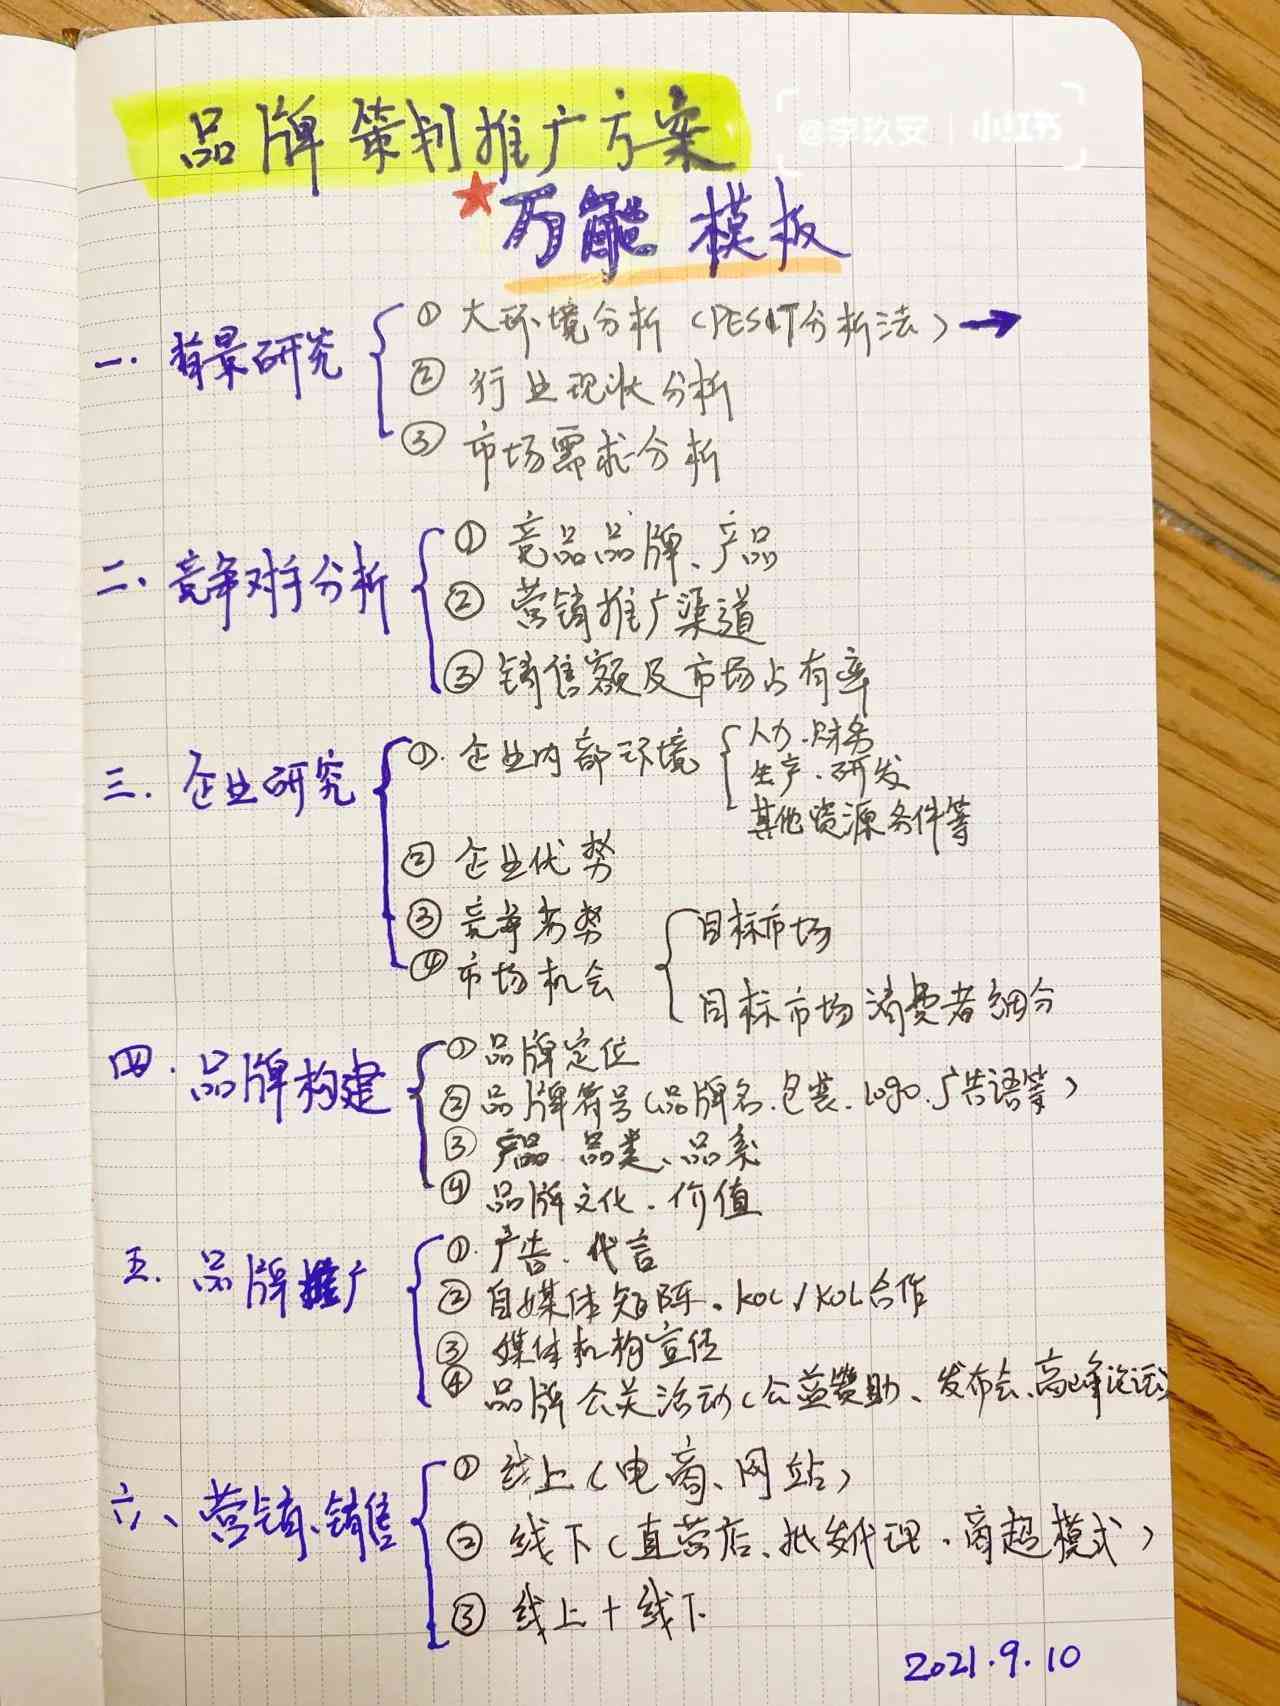 品牌策划推广方案
@李玖安 | 小红书
万能模板
一.背景研究
① 大环境分析(PEST分析法)→
② 行业现状分析
③ 市场需求分析
二、竞争对手分析
① 竞品品牌、产品
② 营销推广渠道
③ 销售额及市场占有率
三.企业研究
①.企业内部环境
人力.财务
生产.研发
其他资源条件等
② 企业优势
③ 竞争劣势
④ 市场机会
目标市场
目标市场消费者细分
四.品牌构建
① 品牌定位
② 品牌符号(品牌名.包装.logo.广告语等)
③ 产品.品类、品系
④ 品牌文化.价值
五.品牌推广
①.广告.代言
② 自媒体矩阵.KOC/KOL合作
③ 媒体机构宣传
④ 品牌公关活动(公益赞助、发布会、高峰论坛
六、营销、销售
① 线上(电商、网站)
② 线下(直营店、批发代理.商超模式)
③ 线上+线下
2021.9.10